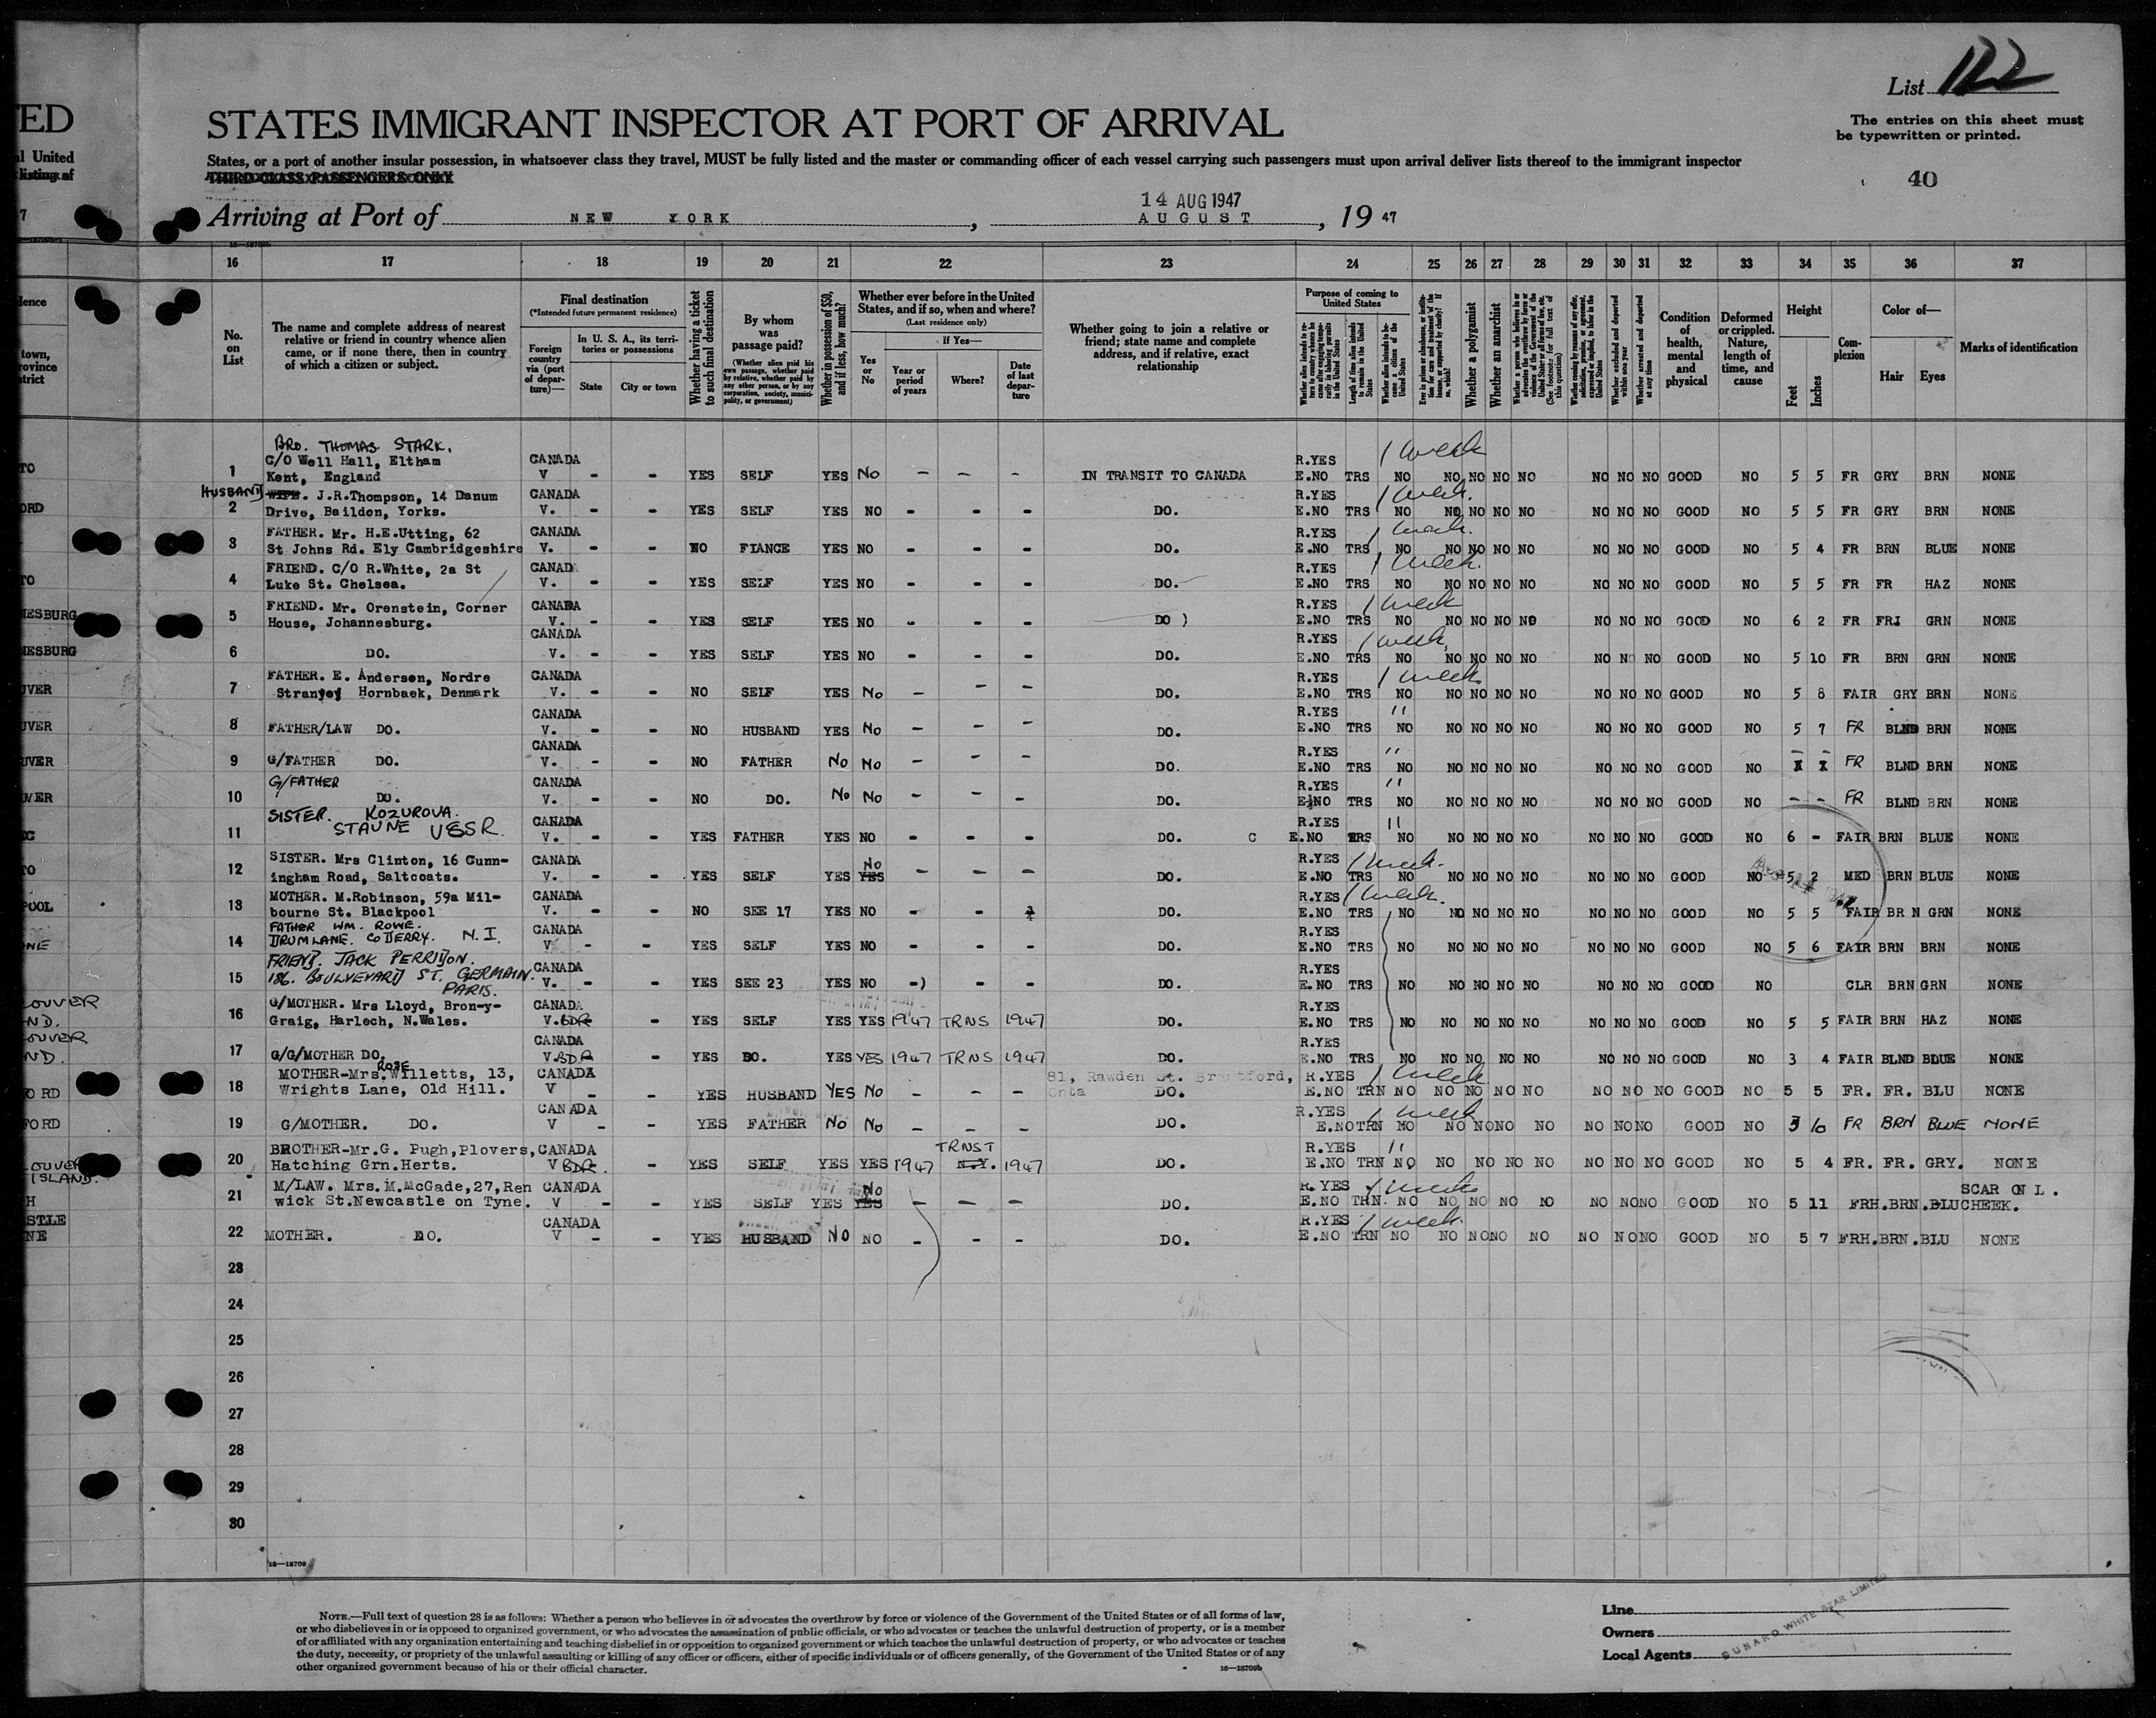 List 122
ED
STATES IMMIGRANT INSPECTOR AT PORT OF ARRIVAL
The entries on this sheet must
be typewritten or printed.
al United
listing of
States, or a port of another insular possession, in whatsoever class they travel, MUST be fully listed and the master or commanding officer of each vessel carrying such passengers must upon arrival deliver lists thereof to the immigrant inspector
THIRD CLASS PASSENGERS ONLY
40
14 AUG 1947
Arriving at Port of NEW YORK, AUGUST, 19 47
16 17 18 19 20 21 22 23 24 25 26 27 28 29 30 31 32 33 34 35 36 37
No. on List
The name and complete address of nearest relative or friend in country whence alien came, or if none there, then in country of which a citizen or subject.
Final destination
(*Intended future permanent residence)
Foreign country via (port of departure)—
In U. S. A., its territories or possessions
State
City or town
Whether having a ticket to such final destination
By whom was passage paid?
(Whether alien paid his own passage, whether paid by relative, whether paid by any other person, or by any corporation, society, municipality, or government)
Whether in possession of $50, and if less, how much?
Whether ever before in the United States, and if so, when and where?
(Last residence only)
Yes or No
If Yes—
Year or period of years
Where?
Date of last departure
Whether going to join a relative or friend; state name and complete address, and if relative, exact relationship
Purpose of coming to United States
Whether a polygamist
Whether an anarchist
Condition of health, mental and physical
Deformed or crippled. Nature, length of time, and cause
Height
Feet
Inches
Complexion
Color of—
Hair
Eyes
Marks of identification
BRO. THOMAS STARK.
1 C/O Well Hall, Eltham Kent, England CANADA V - - YES SELF YES No - - - IN TRANSIT TO CANADA R.YES E.NO TRS 1 week NO NO NO NO NO NO NO NO GOOD NO 5 5 FR GRY BRN NONE
HUSBAND
2 WIFE. J.R.Thompson, 14 Danum Drive, Baildon, Yorks. CANADA V. - - YES SELF YES NO - - - DO. R.YES E.NO TRS 1 week. NO NO NO NO NO NO NO NO GOOD NO 5 5 FR GRY BRN NONE
3 FATHER. Mr. H.E.Utting, 62 St Johns Rd. Ely Cambridgeshire CANADA V. - - NO FIANCE YES NO - - - DO. R.YES E.NO TRS 1 week. NO NO NO NO NO NO NO NO GOOD NO 5 4 FR BRN BLUE NONE
4 FRIEND. C/O R.White, 2a St Luke St. Chelsea. CANAD V. - - YES SELF YES NO - - - DO. R.YES E.NO TRS 1 week. NO NO NO NO NO NO NO NO GOOD NO 5 5 FR FR HAZ NONE
5 FRIEND. Mr. Orenstein, Corner House, Johannesburg. CANADA V. - - YES SELF YES NO - - - DO ) R.YES E.NO TRS 1 week NO NO NO NO NO NO NO NO GOOD NO 6 2 FR FRI GRN NONE
6 DO. CANADA V. - - YES SELF YES NO - - - DO. R.YES E.NO TRS 1 week, NO NO NO NO NO NO NO NO GOOD NO 5 10 FR BRN GRN NONE
7 FATHER. E. Andersen, Nordre Stranvej Hornbaek, Denmark CANADA V. - - NO SELF YES No - - - DO. R.YES E.NO TRS 1 week NO NO NO NO NO NO NO NO GOOD NO 5 8 FAIR GRY BRN NONE
8 FATHER/LAW DO. CANADA V. - - NO HUSBAND YES No - - - DO. R.YES E.NO TRS " NO NO NO NO NO NO NO NO GOOD NO 5 7 FR BLND BRN NONE
9 G/FATHER DO. CANADA V. - - NO FATHER No No - - - DO. R.YES E.NO TRS " NO NO NO NO NO NO NO NO GOOD NO - - FR BLND BRN NONE
10 G/FATHER DO. CANADA V. - - NO DO. No No - - - DO. R.YES E.NO TRS " NO NO NO NO NO NO NO NO GOOD NO - - FR BLND BRN NONE
11 SISTER. KOZUROVA. STAUNE USSR. CANADA V. - - YES FATHER YES NO - - - DO. C R.YES E.NO TRS " NO NO NO NO NO NO NO NO GOOD NO 6 - FAIR BRN BLUE NONE
12 SISTER. Mrs Clinton, 16 Cunningham Road, Saltcoats. CANADA V. - - YES SELF YES No YES - - - DO. R.YES E.NO TRS 1 week. NO NO NO NO NO NO NO NO GOOD NO 5 2 MED BRN BLUE NONE
13 MOTHER. M.Robinson, 59a Milbourne St. Blackpool CANADA V. - - NO SEE 17 YES NO - - DO. R.YES E.NO TRS 1 week. NO NO NO NO NO NO NO NO GOOD NO 5 5 FAIR BR N GRN NONE
14 FATHER WM. ROWE. DRUMLANE. CO DERRY. N.I. CANADA V - - YES SELF YES NO - - - DO. R.YES E.NO TRS NO NO NO NO NO NO NO NO GOOD NO 5 6 FAIR BRN BRN NONE
15 FRIEND. JACK PERRIDON. 186. BOULVEVARD ST. GERMAIN. PARIS. CANADA V. - - YES SEE 23 YES NO -) - - DO. R.YES E.NO TRS NO NO NO NO NO NO NO NO GOOD NO CLR BRN GRN NONE
16 G/MOTHER. Mrs Lloyd, Bron-y-Graig, Harlech, N.Wales. CANADA V.BDR - YES SELF YES YES 1947 TRNS 1947 DO. R.YES E.NO TRS NO NO NO NO NO NO NO NO GOOD NO 5 5 FAIR BRN HAZ NONE
17 G/G/MOTHER DO. CANADA V.BDR - YES DO. YES YES 1947 TRNS 1947 DO. R.YES E.NO TRS NO NO NO NO NO NO NO NO GOOD NO 3 4 FAIR BLND BLUE NONE
18 MOTHER-Mrs. ROSE Willetts, 13, Wrights Lane, Old Hill. CANADA V - - YES HUSBAND YES No - - - 81, Rawden St. Brantford, Onta DO. R.YES E.NO TRN 1 week NO NO NO NO NO NO NO NO GOOD NO 5 5 FR. FR. BLU NONE
19 G/MOTHER. DO. CANADA V - - YES FATHER No No - - - DO. R.YES E.NO TRN 1 week NO NO NO NO NO NO NO NO GOOD NO 3 10 FR BRN BLUE NONE
20 BROTHER-Mr.G. Pugh, Plovers, Hatching Grn.Herts. CANADA V BDR. - YES SELF YES YES 1947 TRNST N.Y. 1947 DO. R.YES E.NO TRN " NO NO NO NO NO NO NO NO GOOD NO 5 4 FR. FR. GRY. NONE
21 M/LAW. Mrs.M.McGade,27,Ren wick St.Newcastle on Tyne. CANADA V - - YES SELF YES No YES - - - DO. R.YES E.NO TRN. 1 week NO NO NO NO NO NO NO NO GOOD NO 5 11 FRH.BRN.BLU SCAR ON L. CHEEK.
22 MOTHER. DO. CANADA V - - YES HUSBAND NO NO - - - DO. R.YES E.NO TRN 1 week. NO NO NO NO NO NO NO NO GOOD NO 5 7 FRH.BRN.BLU NONE
23
24
25
26
27
28
29
30
16—18709
NOTE.—Full text of question 28 is as follows: Whether a person who believes in or advocates the overthrow by force or violence of the Government of the United States or of all forms of law,
or who disbelieves in or is opposed to organized government, or who advocates the assassination of public officials, or who advocates or teaches the unlawful destruction of property, or is a member
of or affiliated with any organization entertaining and teaching disbelief in or opposition to organized government or which teaches the unlawful destruction of property, or who advocates or teaches
the duty, necessity, or propriety of the unlawful assaulting or killing of any officer or officers, either of specific individuals or of officers generally, of the Government of the United States or of any
other organized government because of his or their official character.
16—18709b
Line
Owners
Local Agents
CUNARD WHITE STAR LIMITED